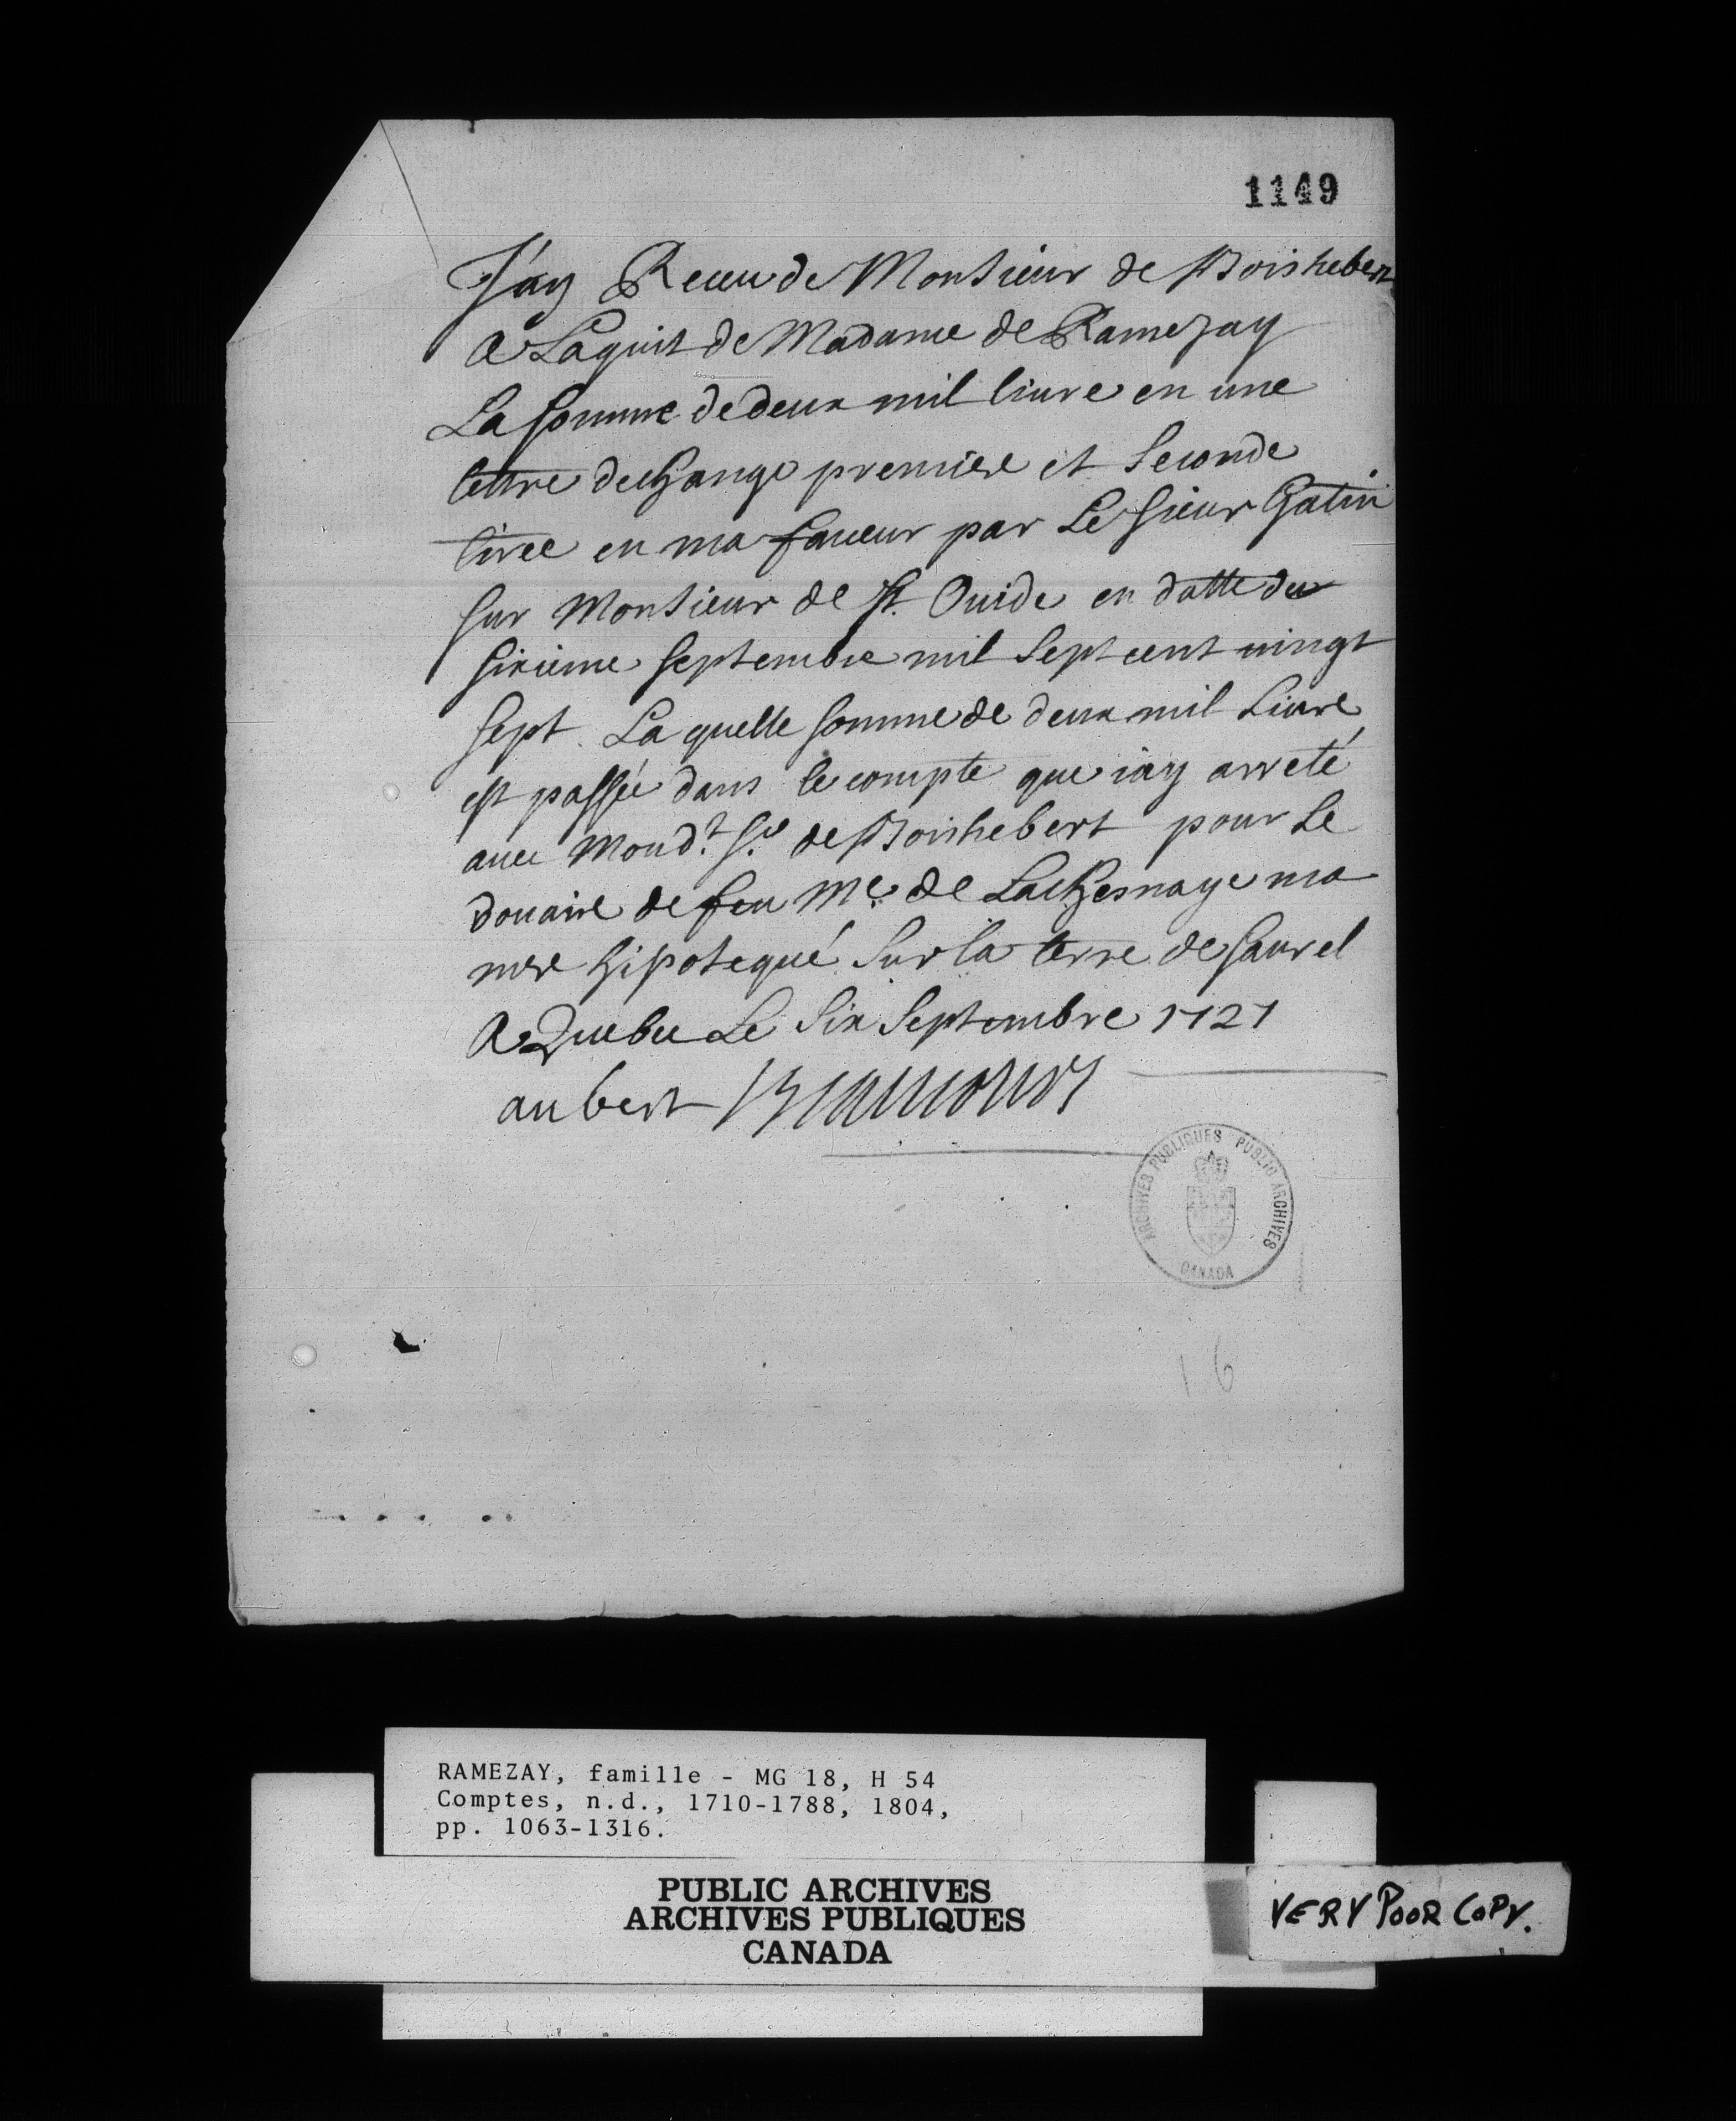 1149
J'ay Receu de Monsieur de Boishebert
a Laquit de Madame de Ramezay
La somme de deux mil liure en une
lettre dechange premiere et seconde
tiree en ma faueur par Le sieur Gatin
sur Monsieur de St. Ouide en datte du
sixieme septembre mil sept cent uingt
sept. La quelle somme de deux mil Liure
est passée dans le compte que iay arreté
auec Mond.t S.r de Boishebert pour Le
douaire de feu Me. de Lachesnaye ma
mere hipotequé sur la terre de saurel
A Quebec Le six septembre 1727
aubert
ARCHIVES PUBLIQUES PUBLIC ARCHIVES
CANADA
16
RAMEZAY, famille - MG 18, H 54
Comptes, n.d., 1710-1788, 1804,
pp. 1063-1316.
PUBLIC ARCHIVES
ARCHIVES PUBLIQUES
CANADA
VERY POOR COPY.